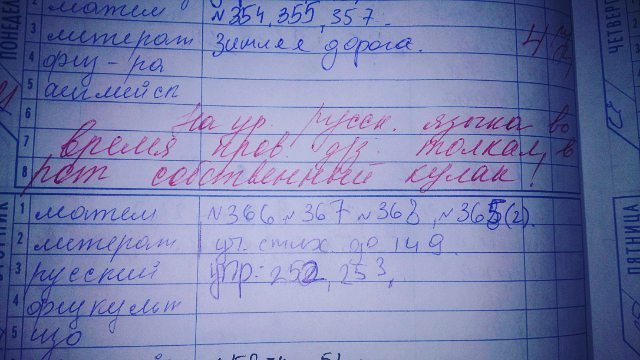 ПОНЕДЕЛ
2 матем №354, 355, 357.
3 литерат Зимняя дорога.
4 физ-ра
5 английск
6 На ур. русск. языка во
7 время пров. д/з. толкал в
8 рот собственный кулак!
ЧЕТВЕРГ
ВТОРНИК
1 матем №366 №367 №368, №365(2).
2 литерат уч. стих до 149
3 русский упр: 252, 253,
4 физкульт
5 изо
ПЯТНИЦА